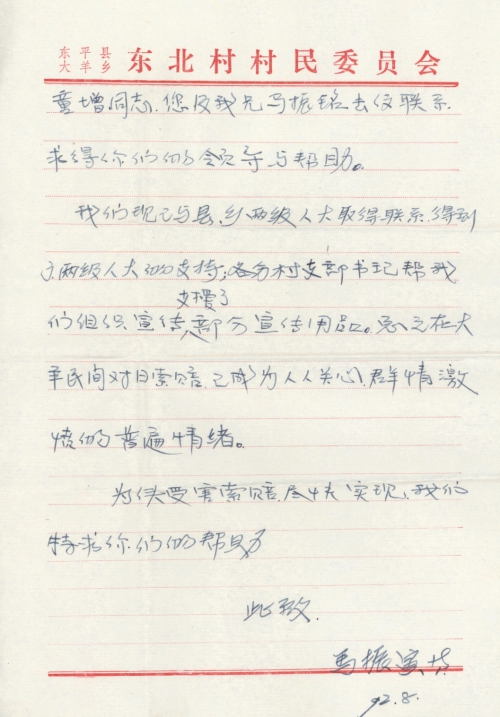 东平县
大羊乡 东北村村民委员会
童增同志. 您及我兄马振铭去仅联系.
求得你们的领导与帮助。
我们现已与县、乡两级人大取得联系. 得到
了两级人大的支持; 各分村支部书记帮我
支援了
们组织宣传部分宣传用品。 在大
羊民间对日索赔. 已成为人人关心. 群情激
愤的普遍情绪。
为使受害索赔. 尽快实现、我们
特求你们的帮助
此致.
马振寅
92.8.